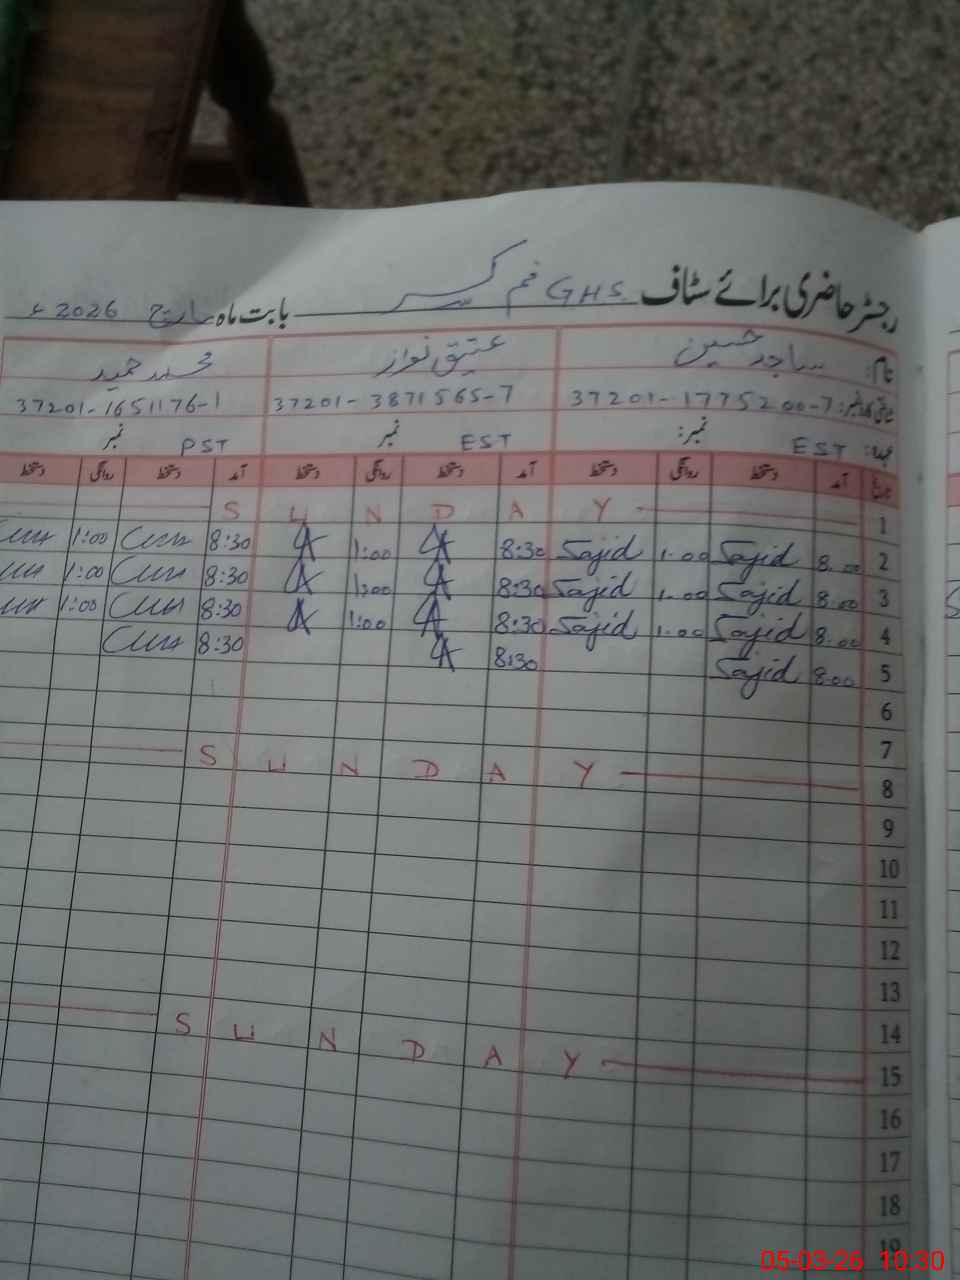 رجسٹر حاضری برائے سٹاف GHS بابت ماہ مارچ 2026 ء
نام: ساجد حسین عتیق نواز محمد حمید
37201-1775200-7 37201-3871565-7 37201-1651176-1
عہدہ: EST نمبر: EST نمبر PST نمبر
تاریخ آمد دستخط روانگی دستخط آمد دستخط روانگی دستخط آمد دستخط روانگی دستخط
1 S U N D A Y
2 8.00 Sajid 1.00 Sajid 8:30 1:00 8:30 1:00
3 8.00 Sajid 1.00 Sajid 8:30 1:00 8:30 1:00
4 8.00 Sajid 1.00 Sajid 8:30 1:00 8:30 1:00
5 8.00 Sajid 8:30 8:30
6
7
8 S U N D A Y
9
10
11
12
13
14
15 S U N D A Y
16
17
18
19
05-03-26 10:30